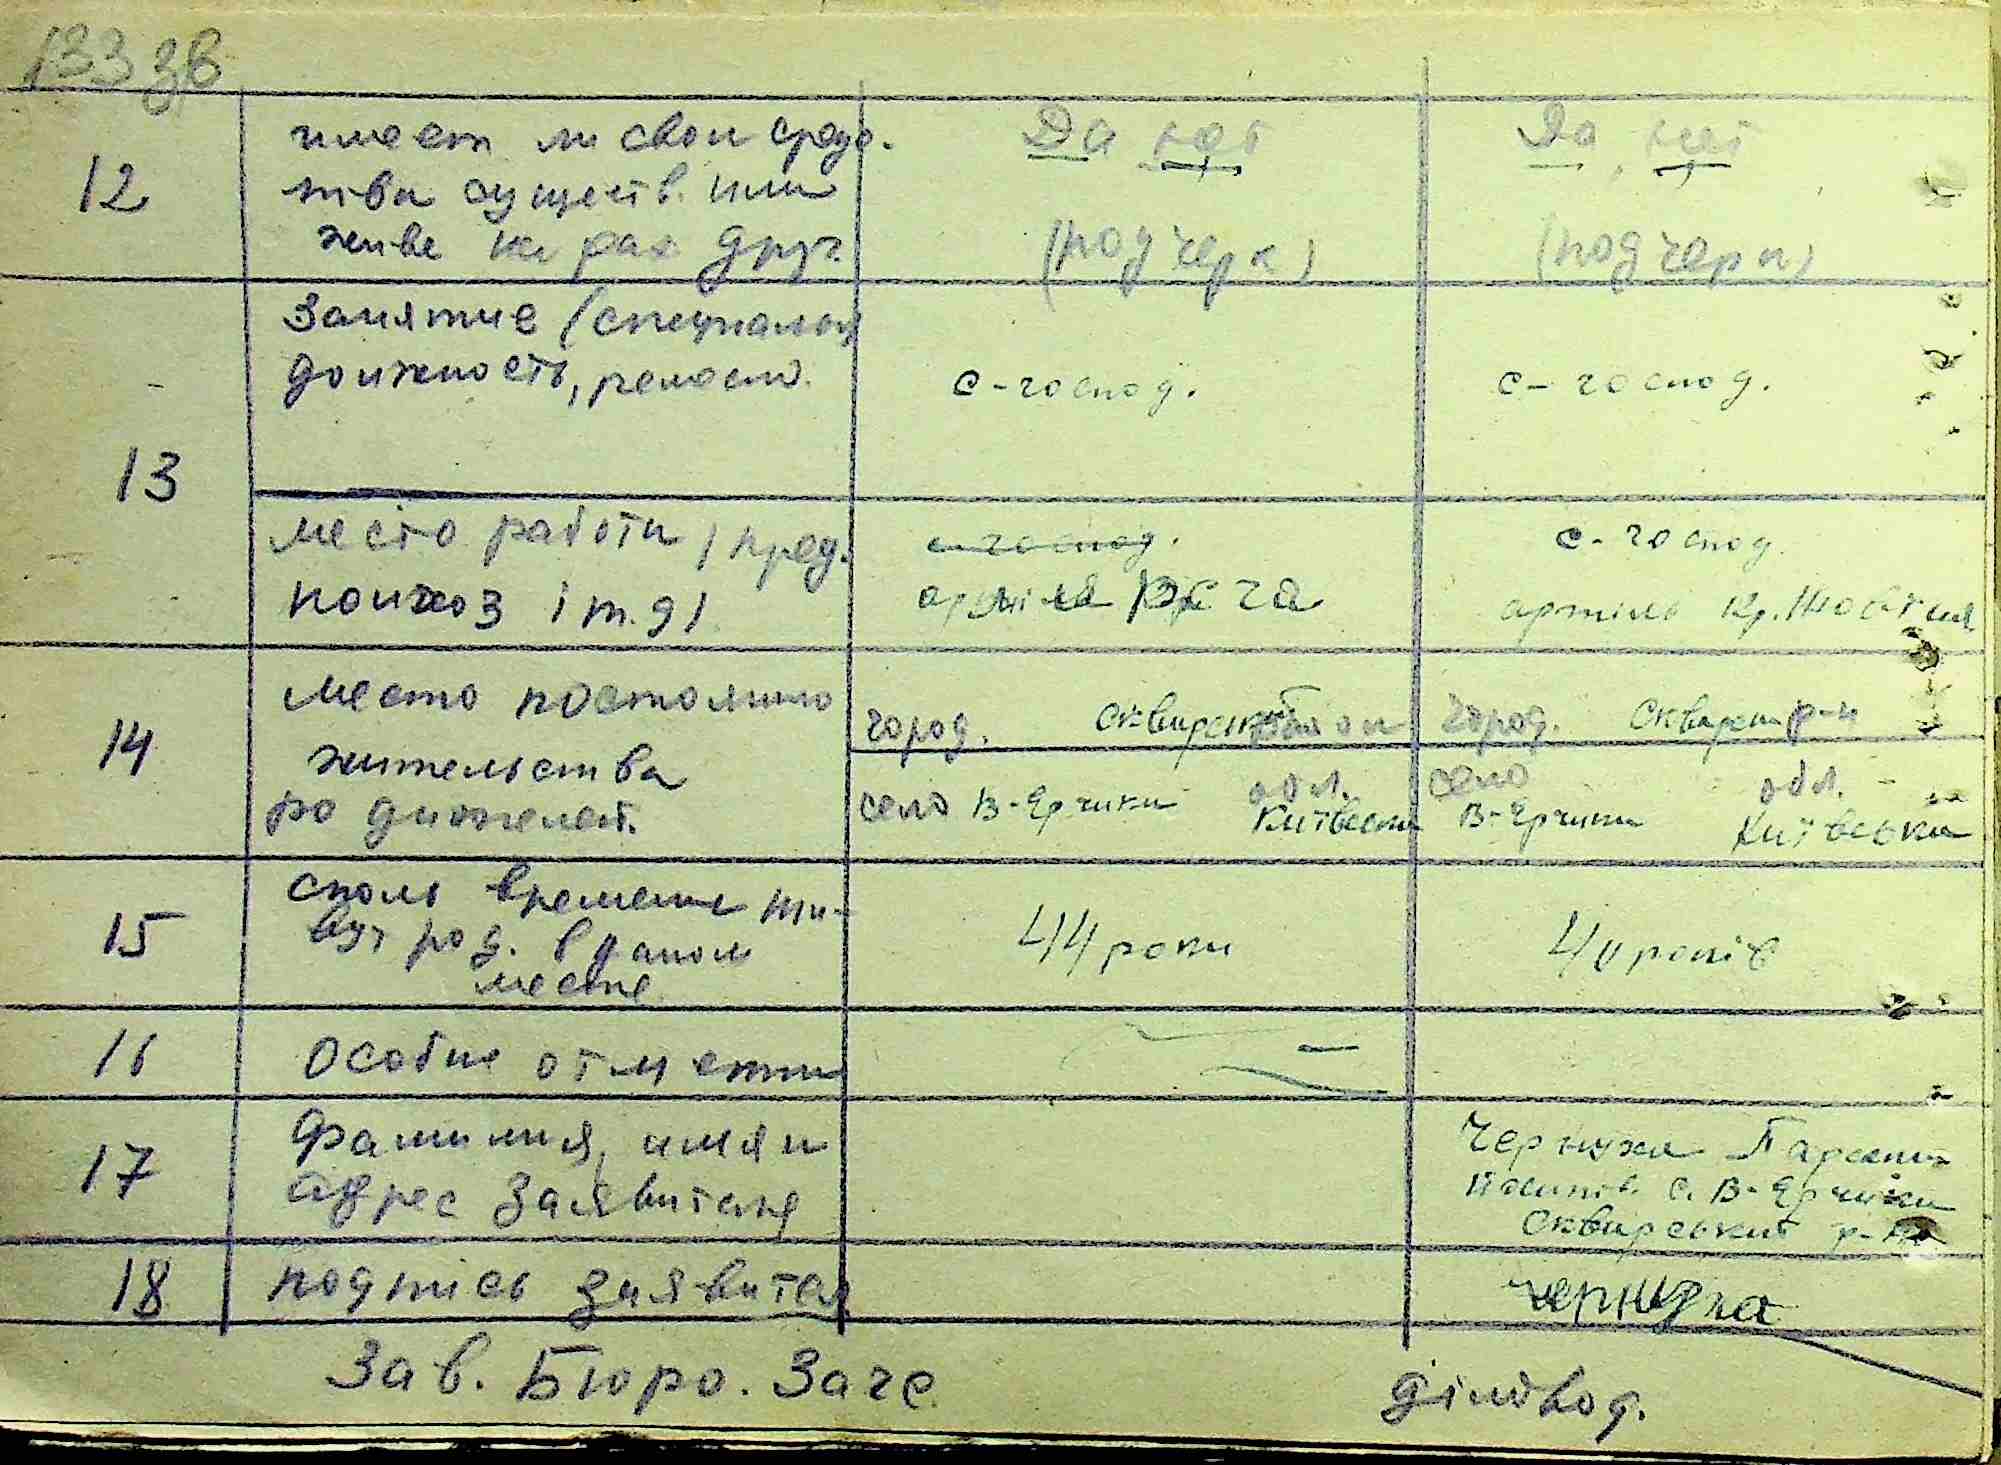 133 зв
12
имеет ли свои средс.
тва существ. или
живе на рах друг.
Да нет
(подчерк)
Да, нет
(подчерк)
13
Занятие (специальн
должность, ремесло.
с-господ.
с-господ.
место работи / пред.
колхоз і т.д)
с-господ.
с-господ
артіль Кр.
14
место постоянно
жительства
родителей.
город. Сквирский
город. Сквирськ р-н
село В-Єрчики обл.
Київська
село обл.
В-Єрчики Київська
15
сколь времени жи-
вут род. в даном
месте
44 роки
40 років
16
особие отметки
—
17
Фамилия, имя и
адрес заявителя
Чернуха Параска
с. В-Єрчики
Сквирський р-н
18
подпись заявител
Чернуха
Зав. Бюро. Загс
діловод.